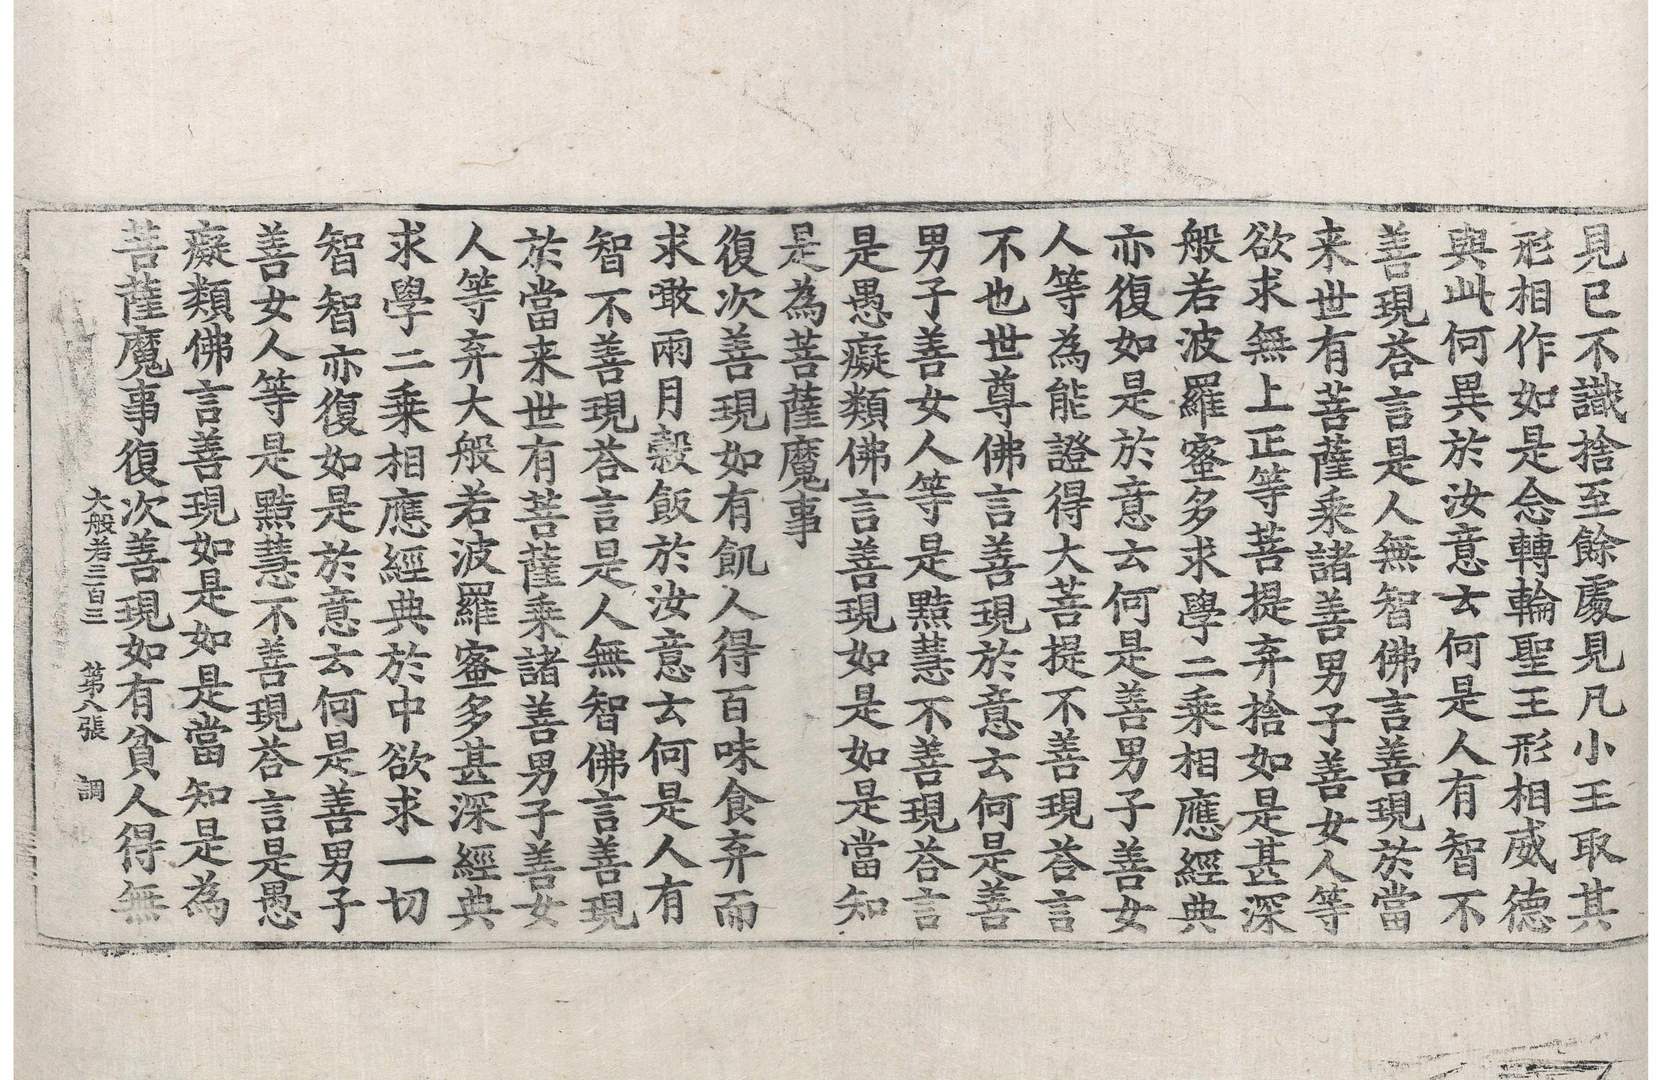 見已不識捨至餘處見凡小王取其
形相作如是念轉輪聖王形相威德
與此何異於汝意云何是人有智不
善現荅言是人無智佛言善現於當
来世有菩薩乘諸善男子善女人等
欲求無上正等菩提弃捨如是甚深
般若波羅蜜多求學二乘相應經典
亦復如是於意云何是善男子善女
人等為能證得大菩提不善現荅言
不也世尊佛言善現於意云何是善
男子善女人等是黠慧不善現荅言
是愚癡類佛言善現如是如是當知
是為菩薩魔事
復次善現如有飢人得百味食弃而
求噉兩月穀飯於汝意云何是人有
智不善現荅言是人無智佛言善現
於當来世有菩薩乘諸善男子善女
人等弃大般若波羅蜜多甚深經典
求學二乘相應經典於中欲求一切
智智亦復如是於意云何是善男子
善女人等是黠慧不善現荅言是愚
癡類佛言善現如是如是當知是為
菩薩魔事復次善現如有貧人得無
大般若三百三 第八張 調